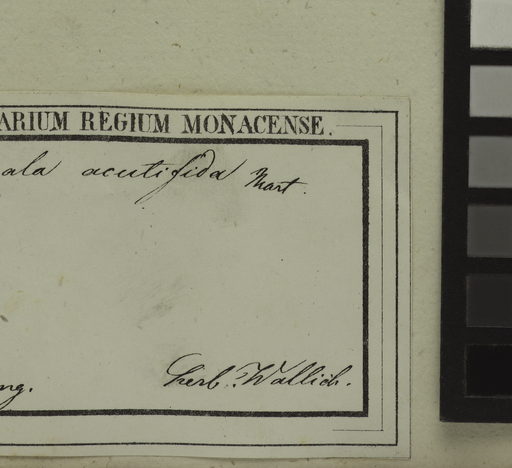 ARIUM REGIUM MONACENSE.
ala acutifida Mart.
ng. Herb. Wallich.